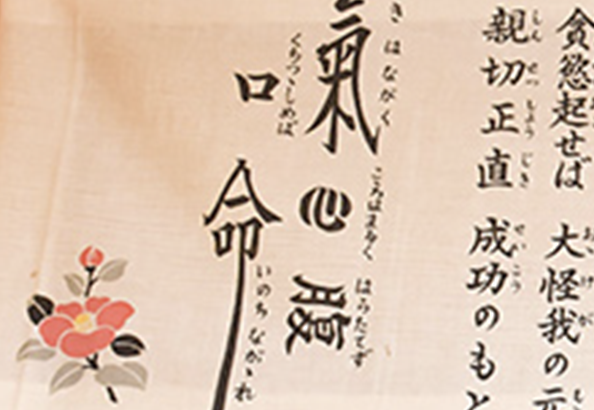 貪慾起せば 大怪我の元
しんせつしょうじき せいこう
親切正直 成功のもと
きはながく
氣
こゝろはまるく
心
はらたてず
腹
くちつゝしめば
口
いのちながゝれ
命